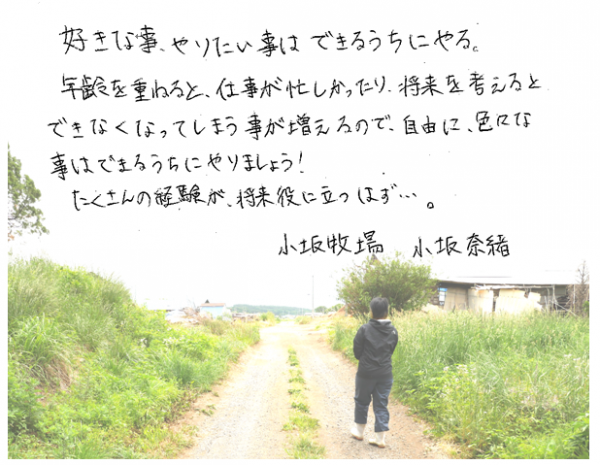 好きな事、やりたい事は できるうちにやる。
年齢を重ねると、仕事が忙しかったり、将来を考えると
できなくなってしまう事が増えるので、自由に、色々な
事はできるうちにやりましょう!
たくさんの経験が、将来役に立つはず…。
小坂牧場 小坂奈緒